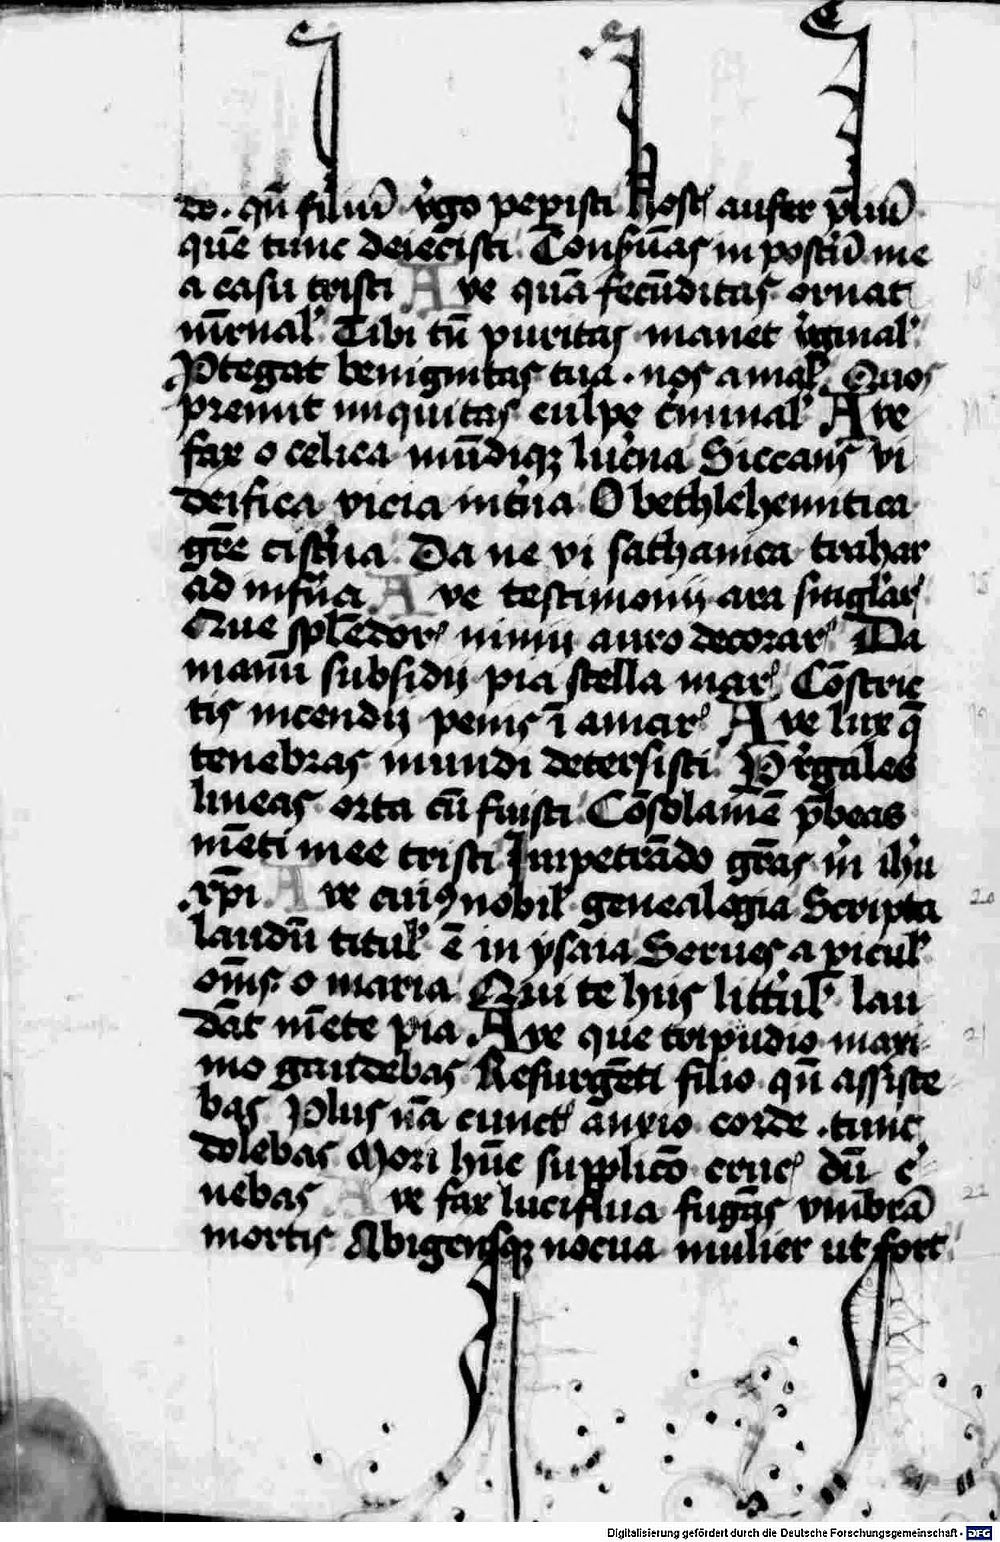 do. qn̄ filiū v̓go peperisti Host᷒ aufer p̄liū
quē tunc deiecisti Conẜuas in post̓ū me
a casu tristi Ave quā fecūditas ornat
m̄rnal᷒ Tibi tn̄ puritas manet v̓ginal᷒
Ptegat benignitas tua. nos a mal᷒ Quos
premit iniquitas culpe c̓minal᷒ Ave
fax o celica mūdiqꝫ luc̓na Siccans vi
deifica vicia int̓na O bethlehemitica
gr̄e cist̓na Da ne vi sathanica trahar
ad inf̓na Ave testimonij ara singlar᷒
Que splēdor᷒ nimij auro decorar᷒ Da
manū subsidij pia stella mar᷒ Cōstric
tis incendij penis ī amar᷒ Ave lux q̄
tenebras mundi detersisti P̓rgales
lineas orta cū fuisti Cōsolamē p̄beas
mēti mee tristi Impetrādo gr̄as m̓ ih̓u
xp̄i Ave cuiꝯ nobil᷒ genealogia Scripta
laudū titul᷒ ē in ysaia Serues a picul᷒
om̄s o maria Qui te hijs litt̓ul᷒ lau
dāt mēte pia Ave que tripudio maxi
mo gaudebas Resurgēti filio qn̄ assiste
bas Plus cunct᷒ anxio corde. tunc
dolebas Mori hūc supplicō cruc᷒ dū c̓
nebas Ave fax luciflua fugās vmbrā
mortis Abigensqꝫ nocua mulier ut fort᷒
20
21
22
Digitalisierung gefördert durch die Deutsche Forschungsgemeinschaft - DFG